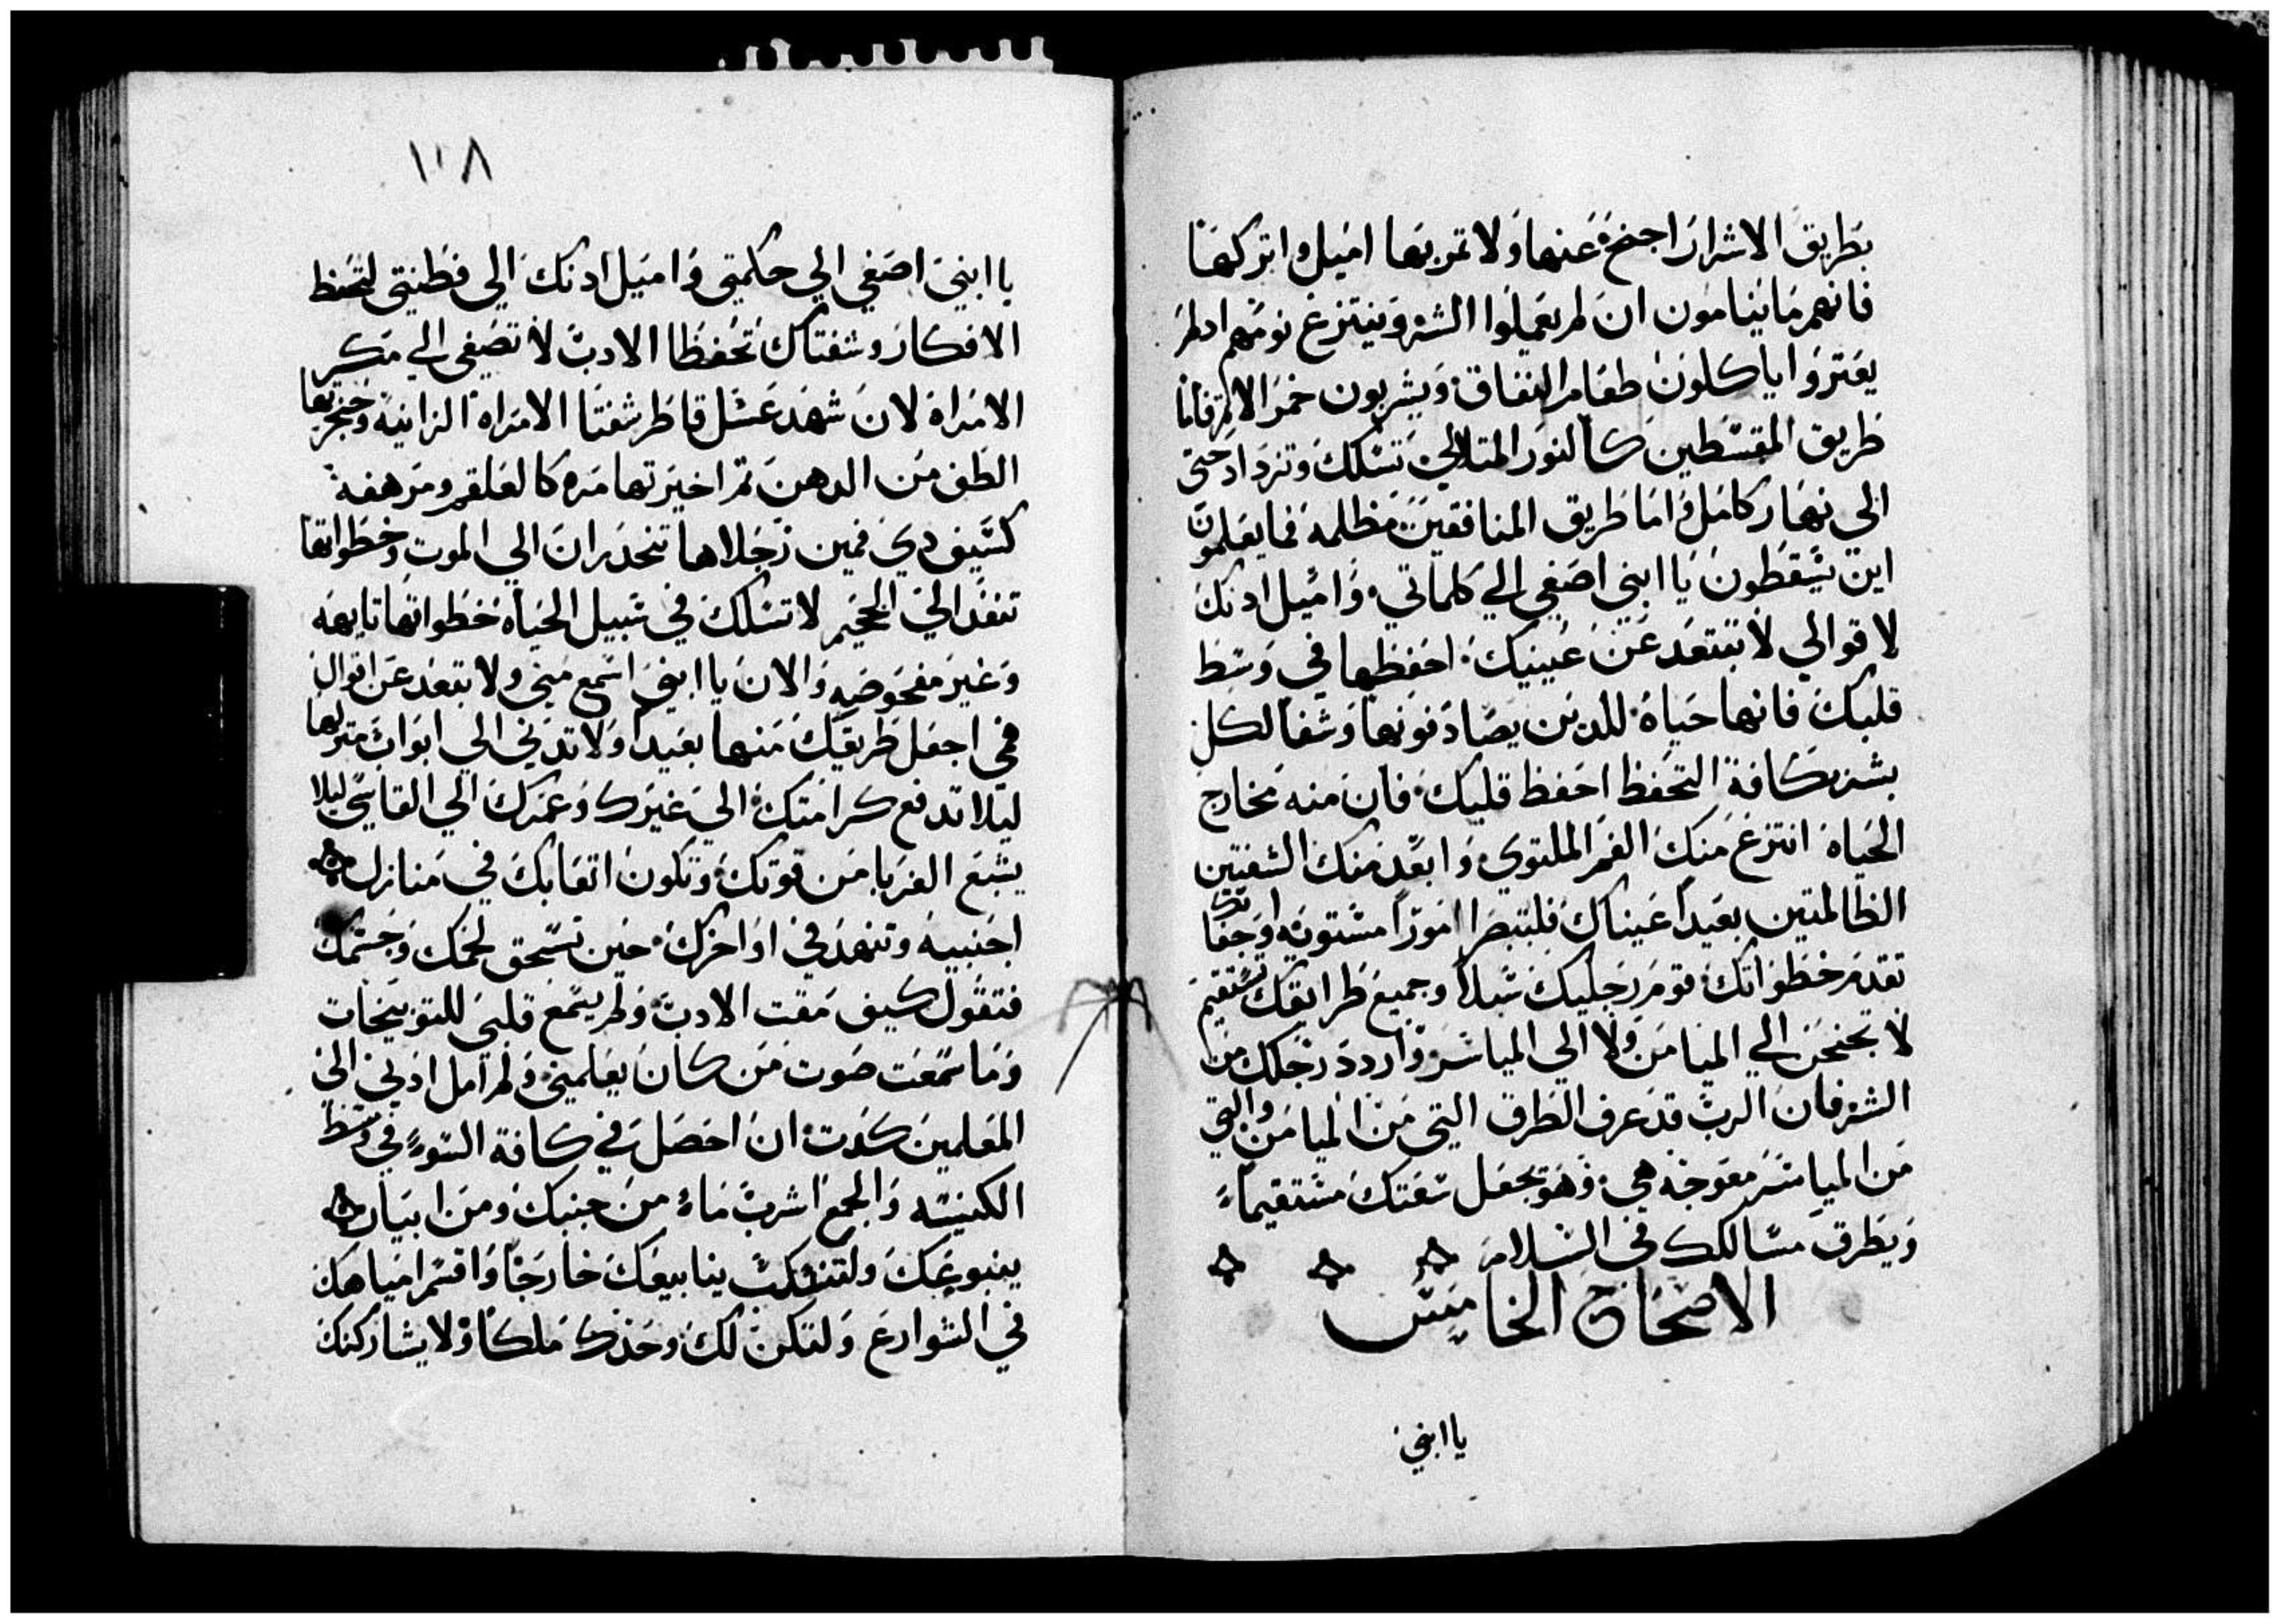 بطريق الاشرار اجنح عنها ولا تمر بها اميل واتركها
فانهم ما ينامون ان لم يعملوا الشر وينتزع نومهم ان لم
يعتروا ياكلون طعام النفاق ويشربون خمر الاثم فاما
طريق المقسطين كالنور المتلالي تسلك وتزداد حتى
الى نهار كامل واما طريق المنافقين مظلمه فما يعلمون
اين يسقطون يا ابني اصغي الي كلماتي واميل ادنك
لاقوالي لا تبتعد عن عينيك احفظها في وسط
قلبك فانها حياة للدين يصادفونها وشفا لكل
بشر بكافة التحفظ احفظ قلبك فان منه مخارج
الحياه انتزع منك الفم الملتوي وابعد منك الشفتين
الظالمتين بعيدا عيناك فلتبصرا امورا مستويه واجفانك
تقدم خطواتك قوم رجليك سبلا وجميع طرايقك تستقيم
لا تجنحن الي الميامن ولا الى المياسر واردد رجلك من
الشر فان الرب قد عرف الطرق التي من الميامن والتي
من المياسر معوجه هي وهو يجعل سعتك مستقيما
ويطرق مسالكك في السلام
الاصحاح الخامس
يا ابني
١٠٨
يا ابني اصغي الي حكمتي واميل ادنك الي فطنتي لتحفظ
الافكار وشفتاك تحفظا الادب لا تصغى الي مكر
الامراة لان شهد عسل قاطر شفتا الامراه الزانيه وحنجرتها
الطف من الدهن ثم اخيرتها مره كالعلقم ومرهفة
كسيف دي فمين رجلاها تنحدران الي الموت وخطواتها
تنفد الي الجحيم لا تسلك في سبيل الحياه خطواتها تايهه
وغير مفحوضيه والان يا ابني اسمع مني ولا تبتعد عن اقوال
فمي اجعل طريقك منها بعيدا ولا تدني الي ابواب منزلها
ليلا تدفع كرامتك الي غيرك وعمرك الي القاسي ليلا
يشبع الغربا من قوتك وتكون اتعابك في منازل
اجنبيه وتنهد في اواخرك حين تسحق لحمك وجسمك
فتقول كيف مقت الادب ولم يسمع قلبي للتوبيخات
وما سمعت صوت من كان يعلمني ولم امل ادني الي
المعلمين كدت ان احصل في كافة السوء في وسط
الكنيسه والجمع اشرب ماء من جبك ومن ابيان
ينبوعك ولتنسكب ينابيعك خارجا واقسم امياهك
في الشوارع ولتكن لك وحدك ملكا ولا يشاركنك